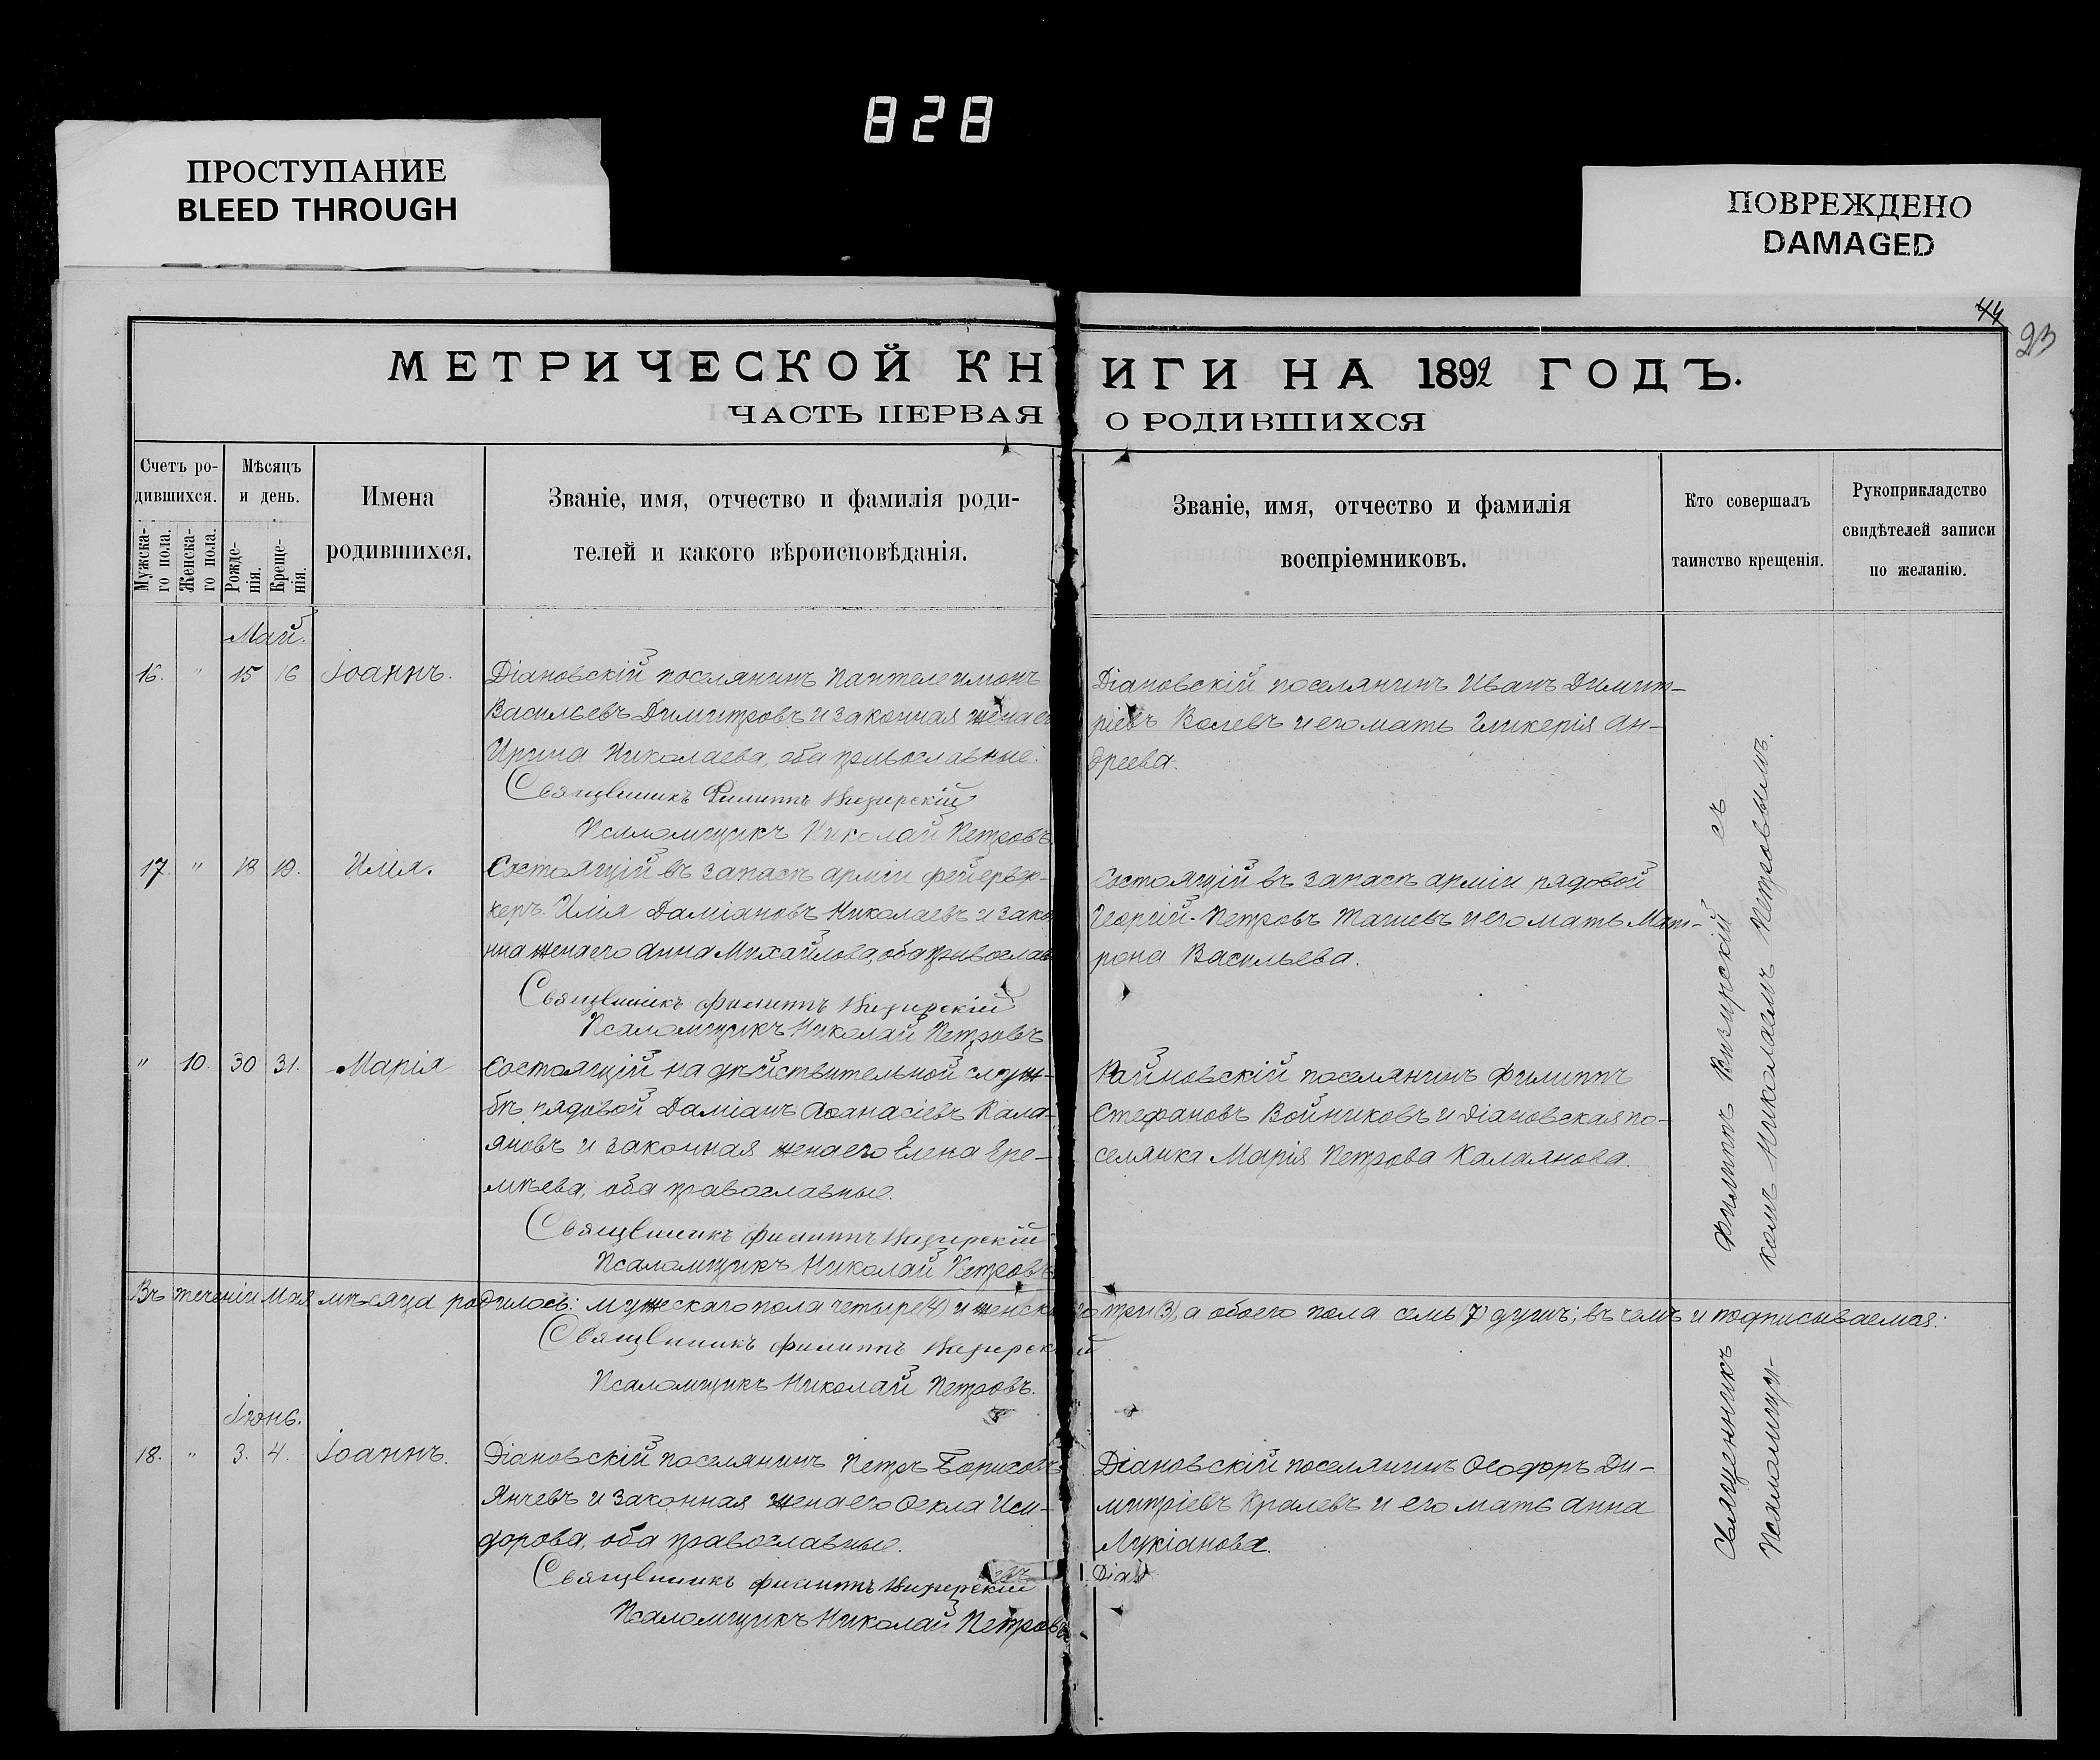 828
ПРОСТУПАНИЕ
BLEED THROUGH
ПОВРЕЖДЕНО
DAMAGED
44
23
МЕТРИЧЕСКОЙ КНИГИ НА 1892 ГОДЪ.
ЧАСТЬ ПЕРВАЯ О РОДИВШИХСЯ
Счетъ ро-
дившихся.
Мужска-
го пола.
Женска-
го пола.
Мѣсяцъ
и день.
Рожде-
нія.
Креще-
нія.
Имена
родившихся.
Званіе, имя, отчество и фамилія роди-
телей и какого вѣроисповѣданія.
Званіе, имя, отчество и фамилія
воспріемниковъ.
Кто совершалъ
таинство крещенія.
Рукоприкладство
свидѣтелей записи
по желанію.
Май.
16. " 15 16 Іоаннъ.
Діановскій поселянинъ Пантелеимонъ
Васильевъ Димитровъ и законная жена ег
Ирина Николаева, оба православные.
Священникъ Филиппъ Визирскій
Псаломщикъ Николай Петровъ
Діановскій поселянинъ Иванъ Димит-
ріевъ Колевъ и его мать Гликерія Ан-
дреева.
17 " 18 19. Илія.
Состоящій въ запасѣ арміи фейервер-
керъ Илія Даміановъ Николаевъ и зако
нна жена его Анна Михайлова, оба православ
Священникъ Филиппъ Визирскій
Псаломщикъ Николай Петровъ
Состоящій въ запасѣ арміи рядовой
Георгій Петровъ Тагиевъ и его мать Мат-
рона Васильева.
" 10. 30 31. Марія
Состоящій на дѣйствительной служ-
бѣ рядовой Даміанъ Аѳанасіевъ Кала-
яновъ и законная жена его Елена Ере-
мѣева, оба православные.
Священникъ Филиппъ Визирскій
Псаломщикъ Николай Петровъ
Райновскій поселянинъ Филиппъ
Стефановъ Войниковъ и Діановская по-
селянка Марія Петрова Калаянова.
Въ теченіи Мая мѣсяца родилось: мужескаго пола четыре (4) и женскаго три (3), а обоего пола семь (7) душъ; въ чемъ и подписываемся:
Священникъ Филиппъ Визирскій
Псаломщикъ Николай Петровъ.
Іюнь.
18. " 3. 4. Іоаннъ.
Діановскій поселянинъ Петръ Борисовъ
Янчевъ и законная жена его Ѳекла Иси-
дорова, оба православные.
Священникъ Филиппъ Визирскій
Псаломщикъ Николай Петровъ
Діановскій поселянинъ Ѳеодоръ Ди-
митріевъ Кралевъ и его мать Анна
Лукіанова.
Діан
Священникъ Филиппъ Визирскій съ
Псаломщи-
комъ Николаемъ Петровымъ.